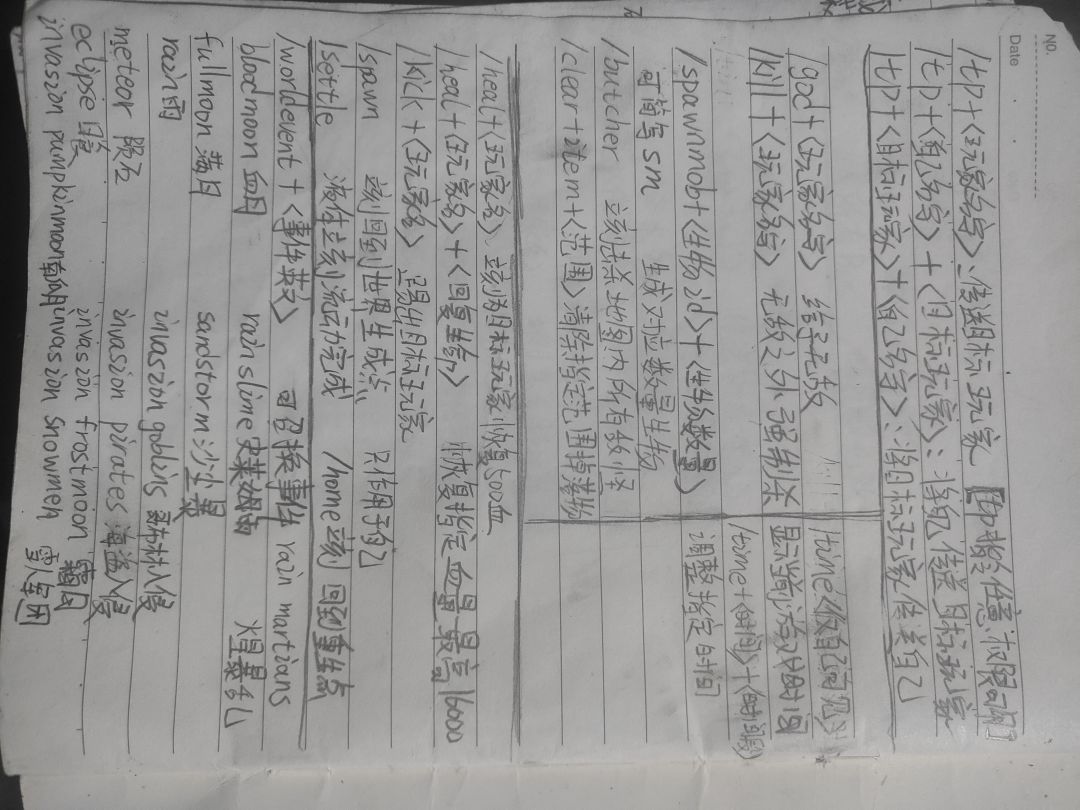 NO.
Date
/tp+<玩家名字>:传送目标玩家 [tp指令任意权限可用]
/tp+<自己名字>+<目标玩家>:将自己传送目标玩家
/tp+<目标玩家>+<自己名字>:将目标玩家传送自己
/god+<玩家名字> 给予无敌
/time 仅自己可见
/kill+<玩家名字> 无敌之外强制杀
显示当前游戏时间
/time+<时间>+
/spawnmob+<生物id>+<生物数量>
调整指定时间
可简写sm 生成对应数量生物
/butcher 立刻击杀地图内所有敌怪
/clear+item+<范围>清除指定范围掉落物
/heal+<玩家名>、立刻为目标玩家恢复600血
/heal+<玩家名>+<回复参数> 恢复指定血量最高16000
/kick+<玩家名> 踢出目标玩家
/spawn 立刻回到世界生成点 只作用于自己
/settle 液体立刻流动完成 /home立刻回到重生点
/worldevent+<事件英文> 可召唤事件 rain martians
bloodmoon 血月 rain slime史莱姆雨 火星暴乱
fullmoon 满月 sandstorm:沙尘暴
rain雨 invasion goblins 哥布林入侵
meteor 陨石 invasion pirates 海盗入侵
eclipse 日食 invasion frostmoon 霜月
invasion pumpkinmoon南瓜月invasion snowmen 雪人军团